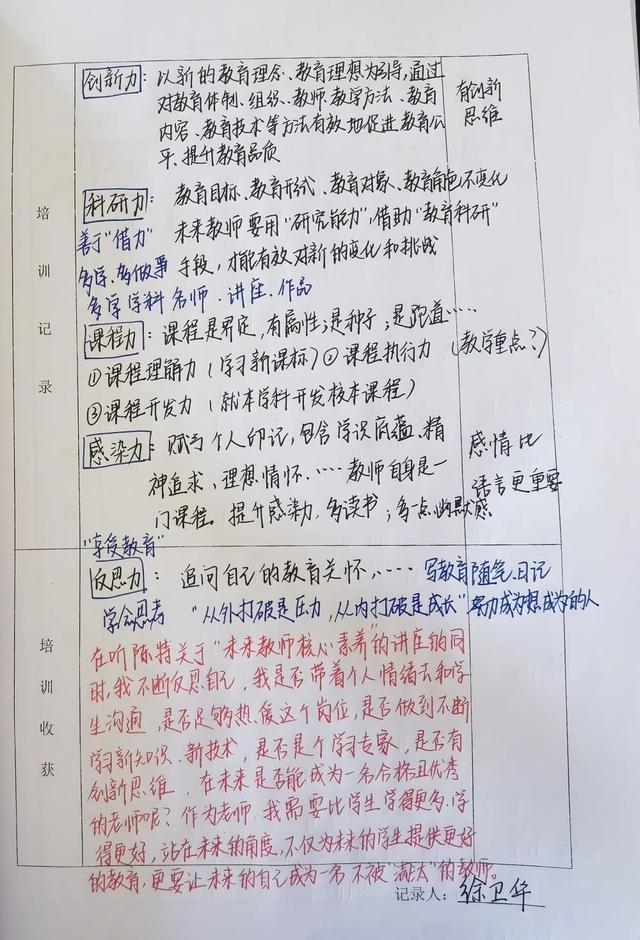 创新力：以新的教育理念、教育理想为引导，通过
对教育体制、组织、教师教学方法、教育
内容、教育技术等方法有效地促进教育公
平、提升教育品质
有创新
思维
培训记录
科研力：教育目标、教育形式、教育对象、教育角色不变化
善于“借力” 未来教师要用“研究能力”，借助“教育科研”
多学、多做事 手段，才能有效对新的变化和挑战
多学学科名师、讲座、作品
课程力：课程是界定，有属性；是种子；是跑道……
①课程理解力（学习新课标）②课程执行力（教学重点？）
③课程开发力（就本学科开发校本课程）
感染力：赋予个人印记，包含学识底蕴、精
神追求、理想情怀……教师自身是一
门课程。提升感染力，多读书；多一点幽默感
感情比
语言更重要
“享受教育”
反思力：追问自己的教育关怀，…… 写教育随笔、日记
学会思考 “从外打破是压力，从内打破是成长” 努力成为想成为的人
培训收获
在听陈特关于“未来教师核心素养”的讲座的同
时，我不断反思自己，我是否带着个人情绪去和学
生沟通，是否足够热爱这个岗位，是否做到不断
学习新知识、新技术，是否是个学习专家，是否有
创新思维，在未来是否能成为一名合格且优秀
的老师呢？作为老师，我需要比学生学得更多，学
得更好，站在未来的角度，不仅为未来的学生提供更好
的教育，更要让未来的自己成为一名不被“淘汰”的教师。
记录人：徐卫华